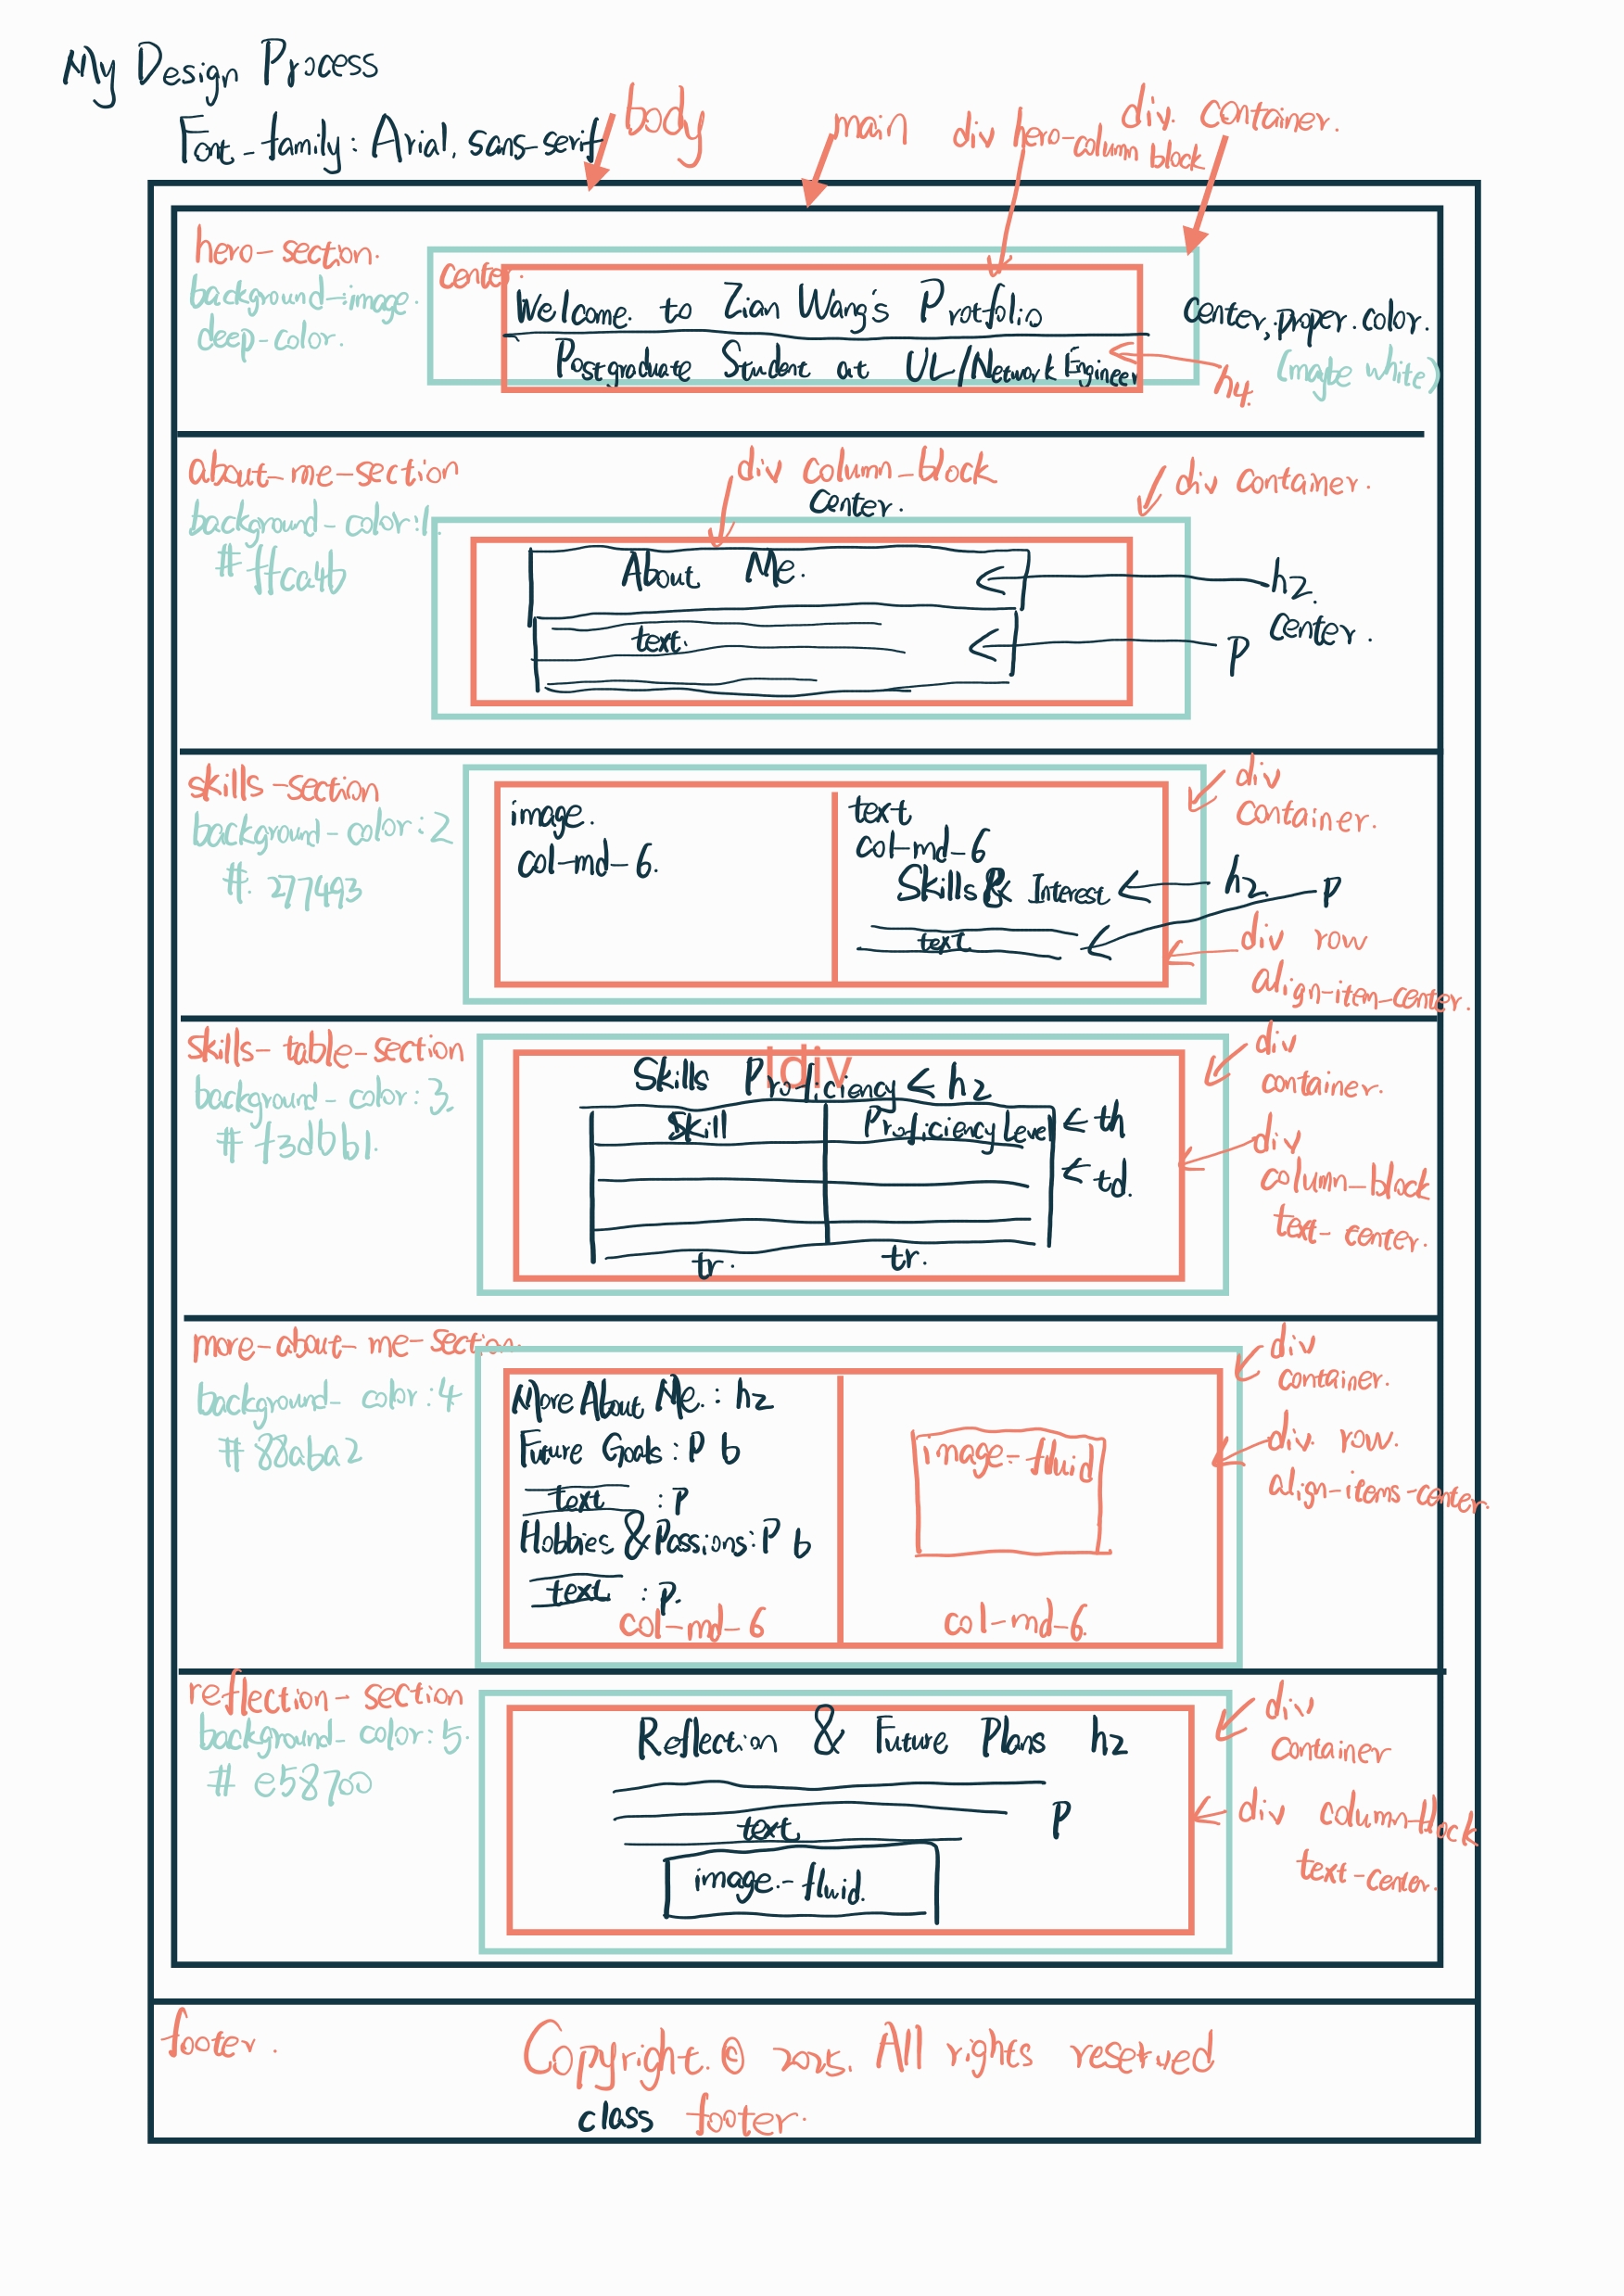 My Design Process
Font-family: Arial, sans-serif
body
main
div hero-column block
div. container.
hero-section.
background-image.
deep-color.
center.
Welcome to Zian Wang's Protfolio
Postgraduate Student at UL/Network Engineer
center, proper color.
(maybe white)
h4.
about-me-section
background-color:1.
#ffca4b
div column-block
center.
div container.
About Me.
text.
h2.
center.
p
skills-section
background-color:2
#. 277493
image.
col-md-6.
text
col-md-6
Skills & Interest
text
div
container.
h2.
p
div row
align-item-center.
skills-table-section
background-color:3.
# f3dbb1.
div
Skills Proficiency
h2
Skill
Proficiency Level
th
td.
tr.
tr.
div
container.
div
column-block
text-center.
more-about-me-section.
background-color:4
# 88aba2
More About Me.: h2
Future Goals: P b
text : p
Hobbies & Passions: P b
text : p.
col-md-6
image-fluid
col-md-6.
div
container.
div. row.
align-items-center.
reflection-section
background-color:5.
# e58700
Reflection & Future Plans h2
text
p
image.-fluid.
div
container
div column-block
text-center.
footer.
Copyright. © 2025. All rights reserved
class footer.